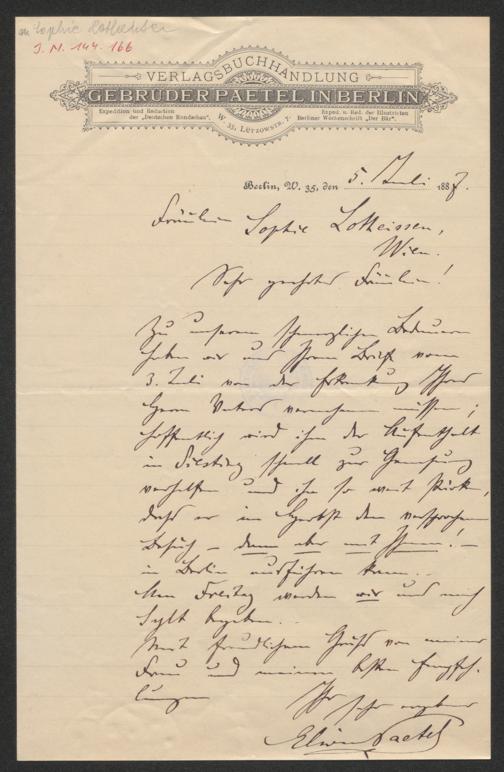 an Sophie Lotheissen
I. N. 144.166
VERLAGSBUCHHANDLUNG
GEBRÜDER PAETEL IN BERLIN
Expedition und Redaction
der „Deutschen Rundschau“.
W. 35, LÜTZOWSTR. 7.
Exped. u. Red. der Illustrirten
Berliner Wochenschrift „Der Bär“.
Berlin, W. 35, den 5. Juli 1887.
Fräulein Sophie Lotheissen,
Wien.
Sehr geehrtes Fräulein!
Zu unserem schmerzlichen Bedauern
haben wir aus Ihrem Brief vom
3. Juli von der Erkrankung Ihres
Herrn Vaters vernehmen müssen;
hoffentlich wird ihm der Aufenthalt
in schnell zur Genesung
verhelfen und ihn so weit stärken,
daß er im Herbst den versprochenen
Besuch – dann aber mit Ihnen! –
in Berlin ausführen kann.
Am Freitag werden wir uns nach
Sylt begeben.
Mit freundlichem Gruß von meiner
Frau und meinen besten Empfeh-
lungen
Ihr sehr ergebener
Elwin Paetel